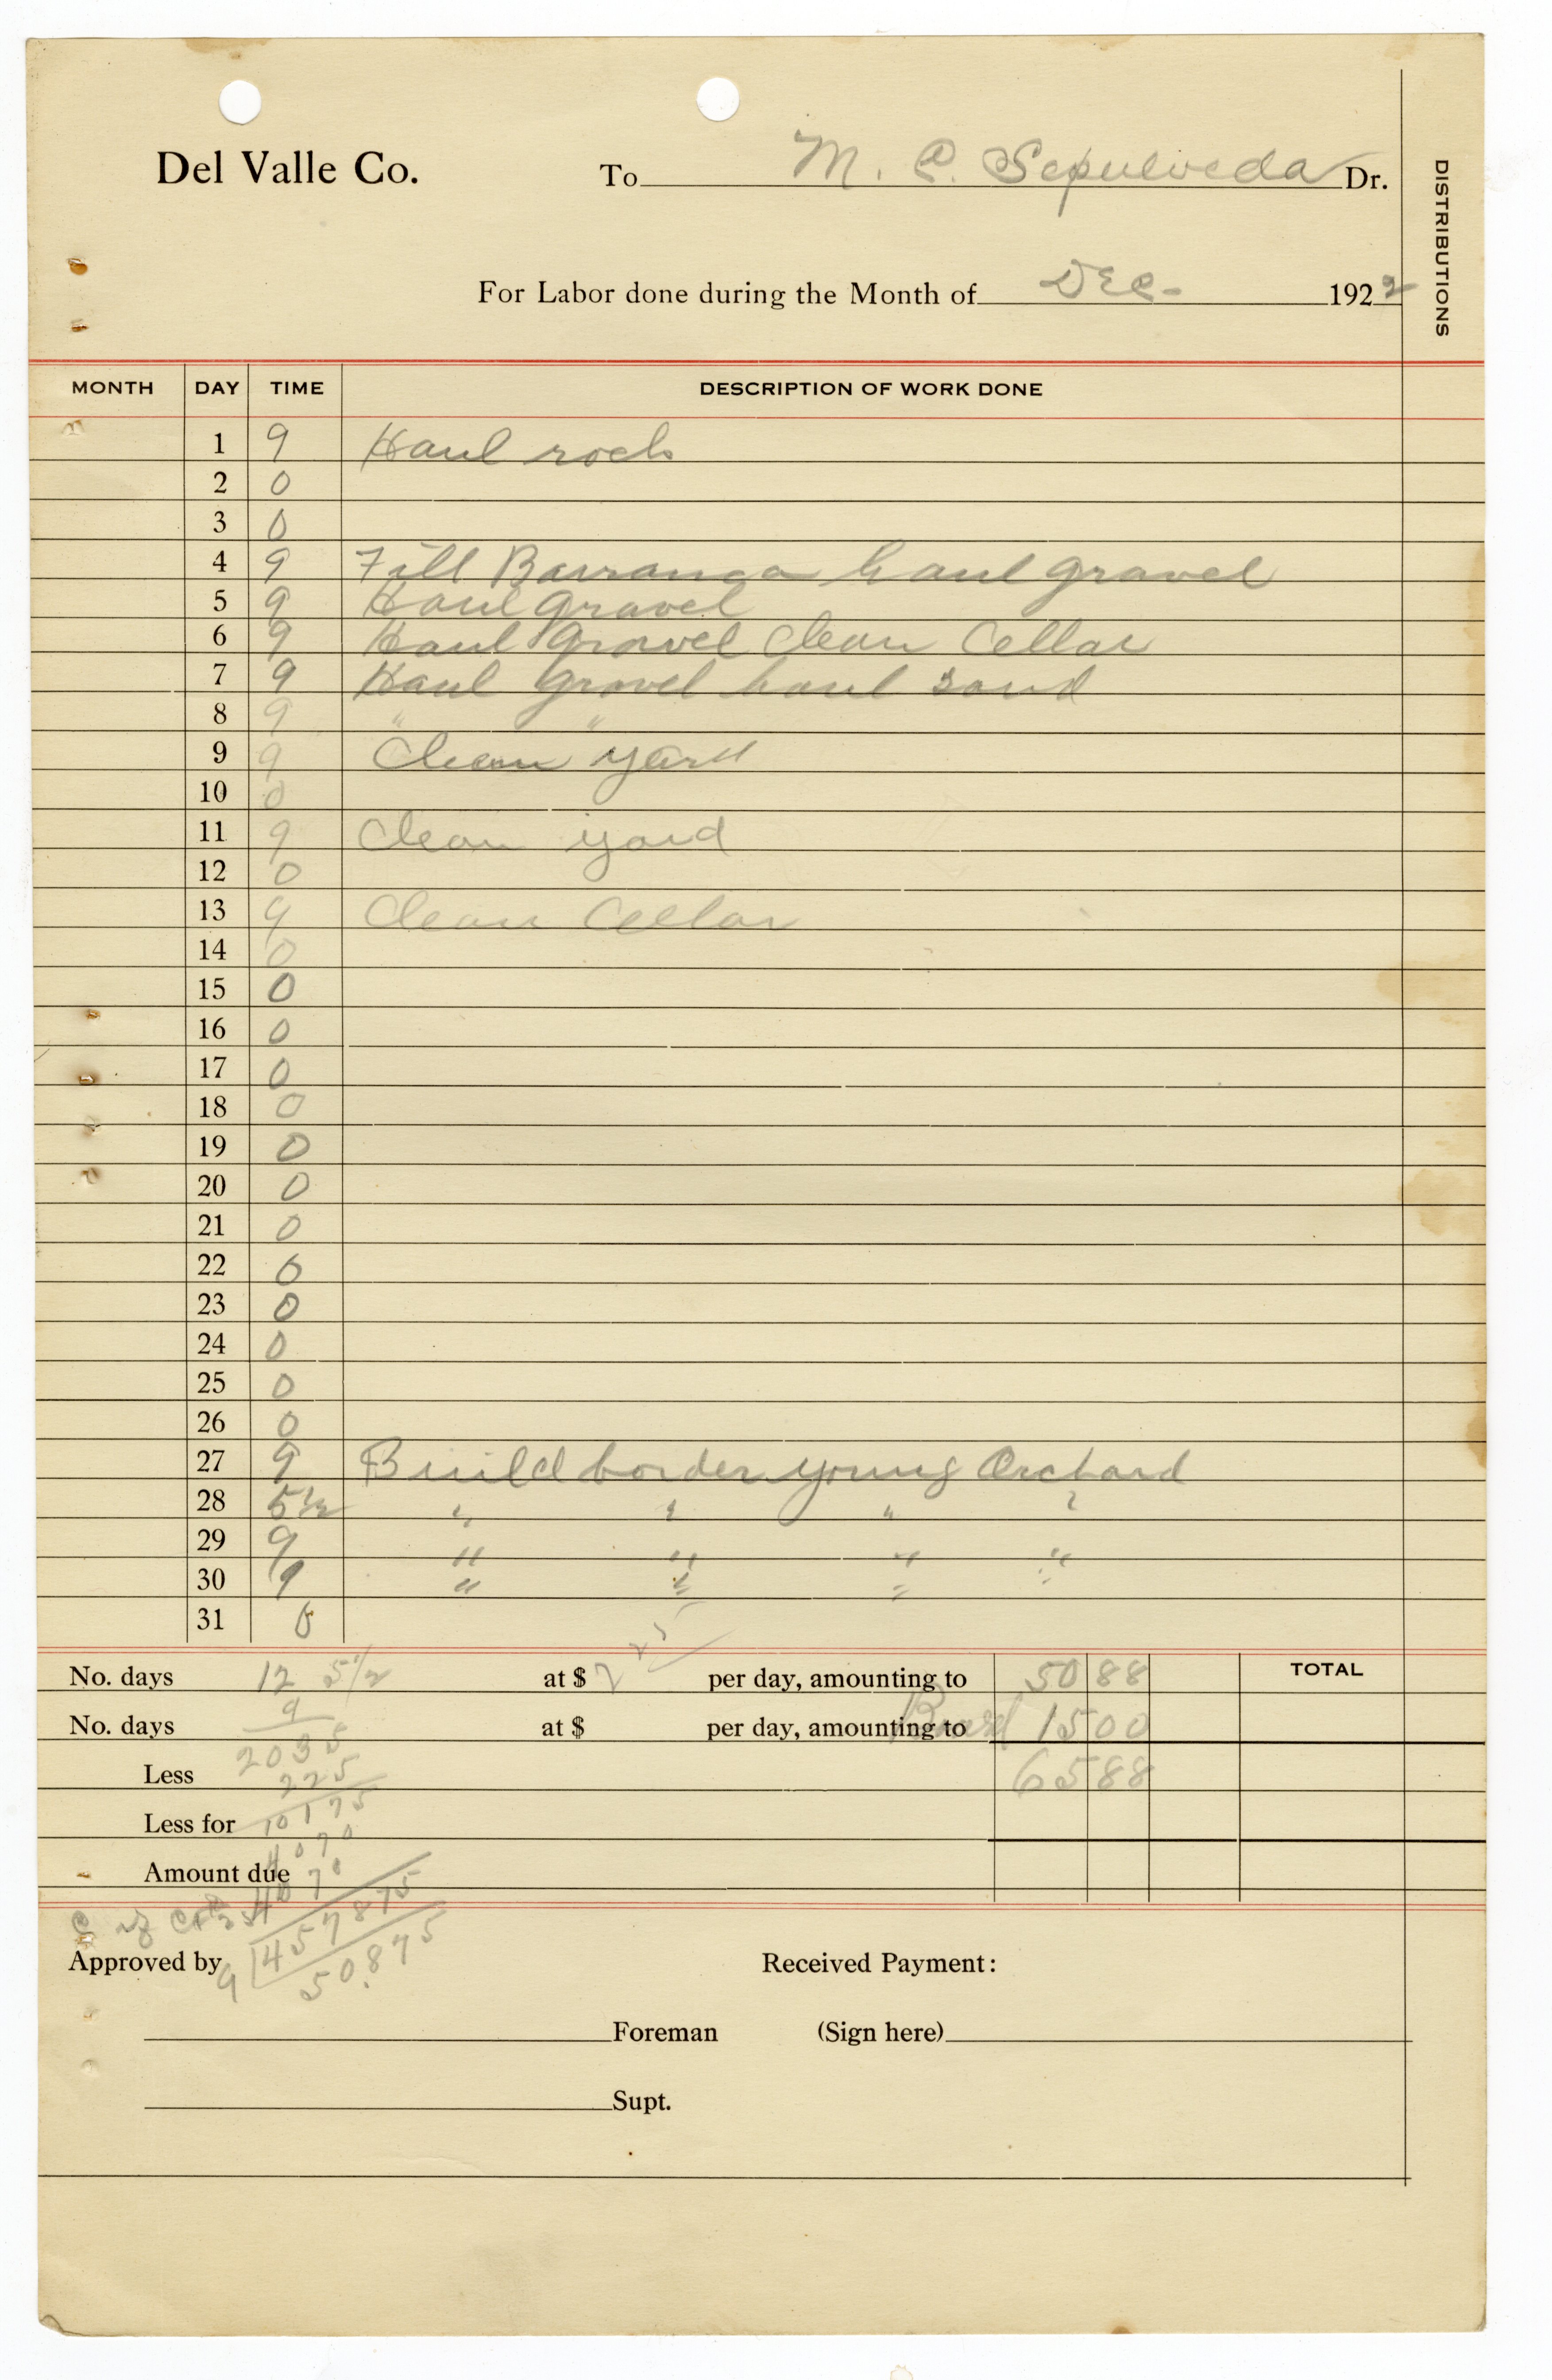 Del Valle Co. To M. C. Sepulveda Dr.
DISTRIBUTIONS
For Labor done during the Month of Dec- 1922
MONTH DAY TIME DESCRIPTION OF WORK DONE
1 9 Haul rock
2 0
3 0
4 9 Fill Barranca haul gravel
5 9 Haul gravel
6 9 Haul Gravel Clean Cellar
7 9 Haul Gravel haul sand
8 9 " "
9 9 Clean yard
10 0
11 9 Clean yard
12 0
13 9 Clean Cellar
14 0
15 0
16 0
17 0
18 0
19 0
20 0
21 0
22 0
23 0
24 0
25 0
26 0
27 9 Build border young Orchard
28 5½ " " " "
29 9 " " " "
30 9 " " " "
31 0
No. days 12 5½ at $ 2 25 per day, amounting to 50 88 TOTAL
9
No. days at $ per day, amounting to Board 15 00
2035
Less 65 88
225
Less for 10175
4070
Amount due
4070
457875
Approved by 9 Received Payment:
50.875
Foreman (Sign here)
Supt.